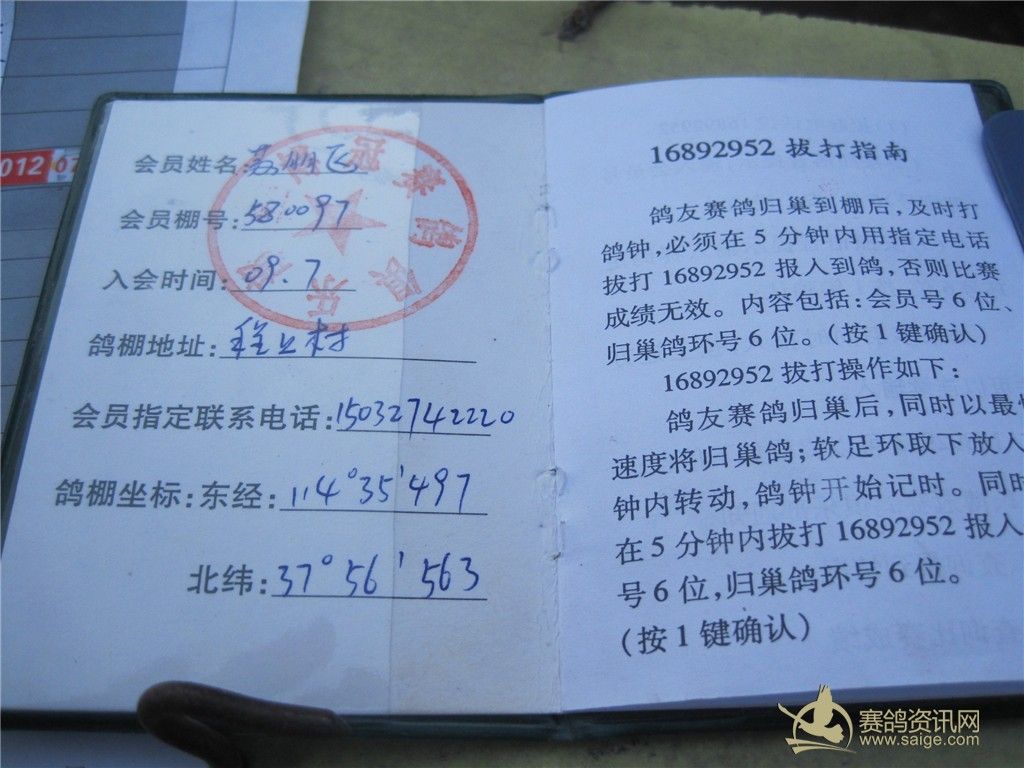 012
会员姓名:苏鹏飞
会员棚号:580097
入会时间:09.7
鸽棚地址:程上村
会员指定联系电话:15032742220
鸽棚坐标:东经:114°35′497
北纬:37°56′563
16892952 拔打指南
鸽友赛鸽归巢到棚后,及时打
鸽钟,必须在 5 分钟内用指定电话
拔打 16892952 报人到鸽,否则比赛
成绩无效。内容包括:会员号 6 位、
归巢鸽环号 6 位。(按 1 键确认)
16892952 拔打操作如下:
鸽友赛鸽归巢后,同时以最
速度将归巢鸽;软足环取下放入
钟内转动,鸽钟开始记时。同时
在 5 分钟内拔打 16892952 报人
号 6 位,归巢鸽环号 6 位。
(按 1 键确认)
赛鸽资讯网
www.saige.com